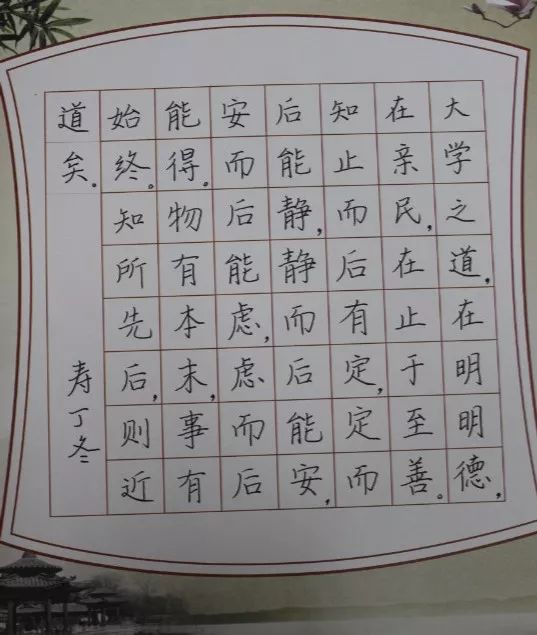 大学之道，在明明德，
在亲民，在止于至善。
知止而后有定，定而
后能静，静而后能安，
安而后能虑，虑而后
能得。物有本末，事有
始终。知所先后，则近
道矣。
寿丁冬